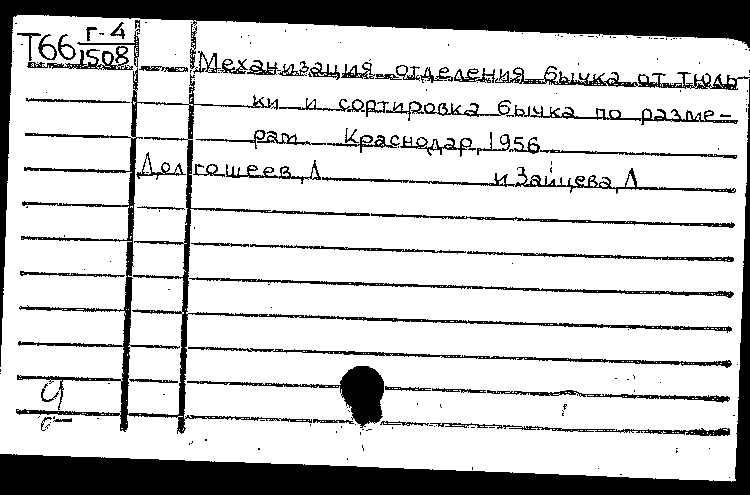 Т66 г-4
1508
Механизация отделения бычка от тюль-
ки и сортировка бычка по разме-
рам Краснодар, 1956
Долгошеев, Л и Зайцева, Л